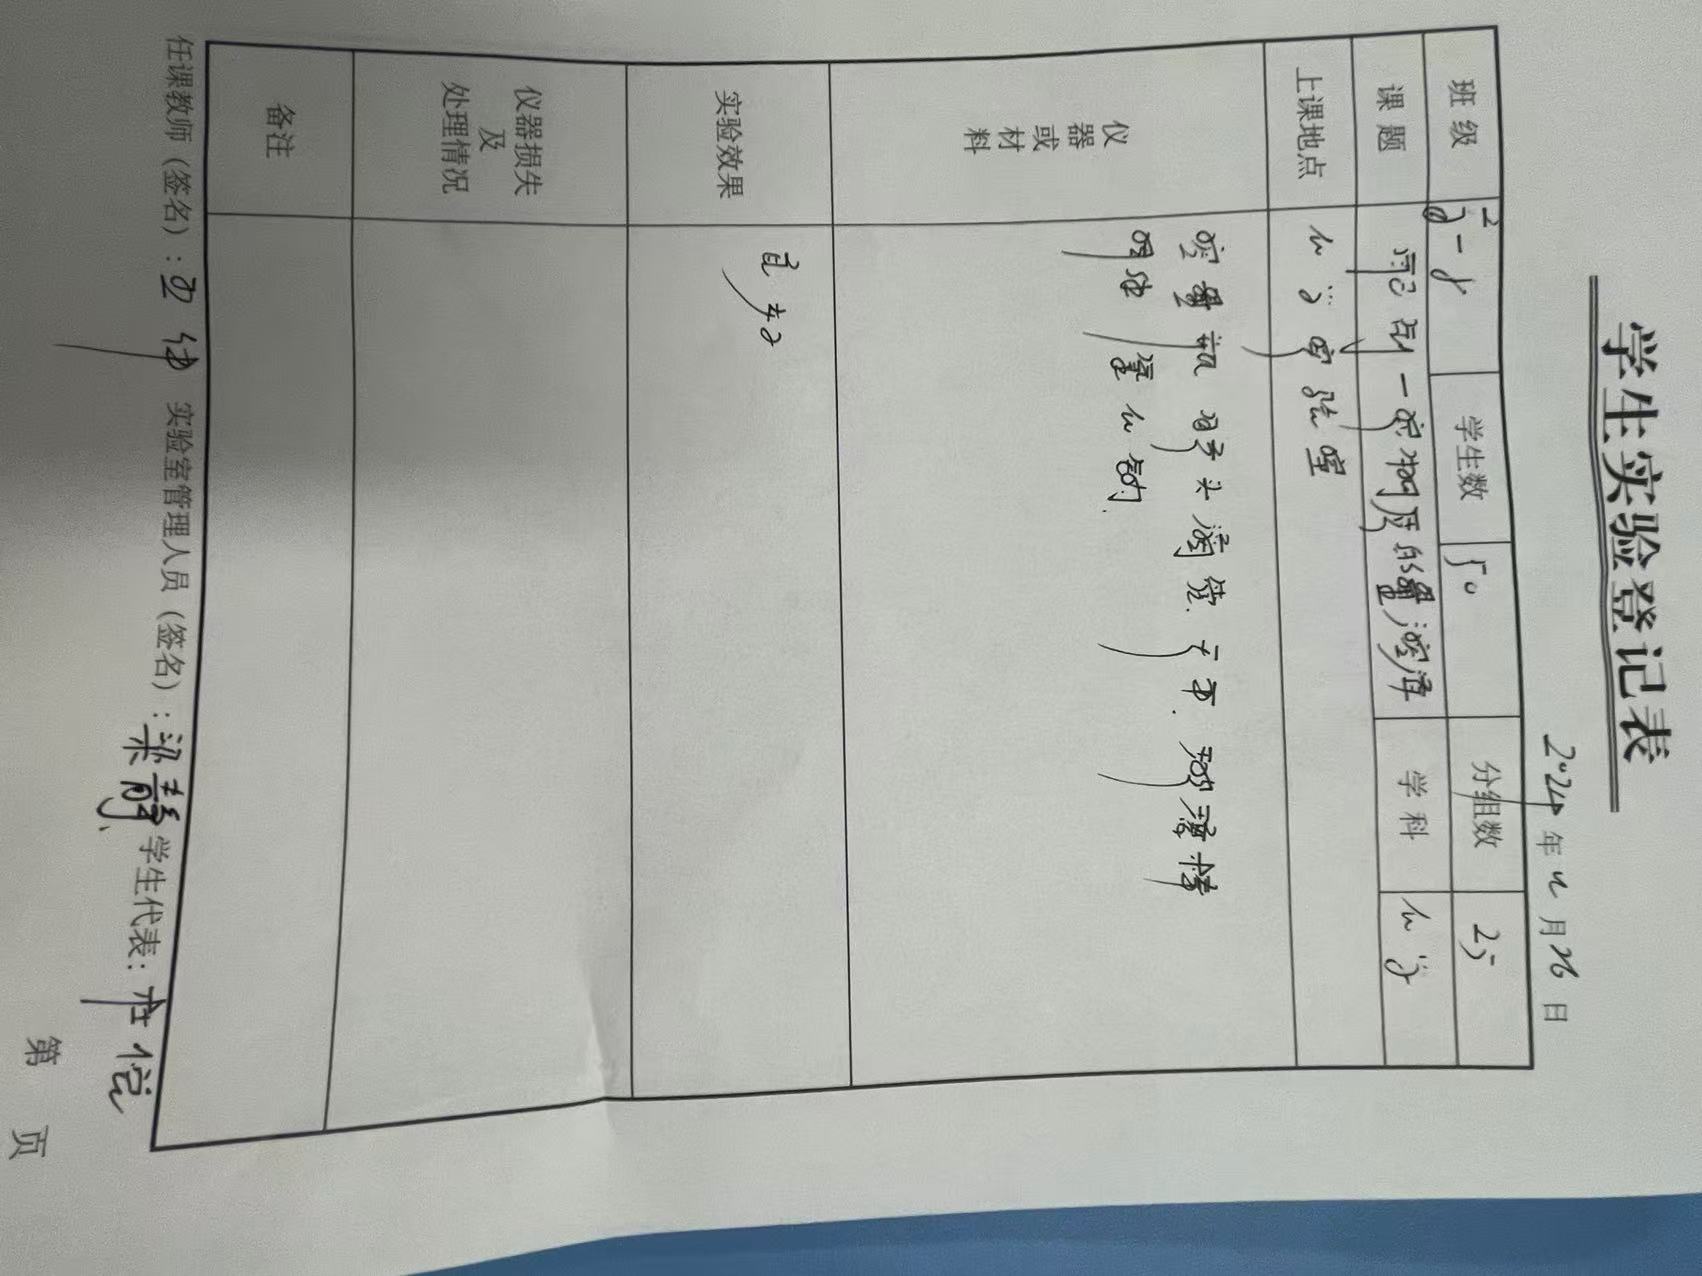 学生实验登记表
2024年11月26日
班级 高一1 学生数 50 分组数 25
课题 配制一定物质的量浓度 学科 化学
上课地点 化学实验室
仪器或材料 容量瓶 胶头滴管 天平 玻璃棒
氯化钠
实验效果 良好
仪器损失及处理情况
备注
任课教师（签名）： 实验室管理人员（签名）：梁静 学生代表：
第 页